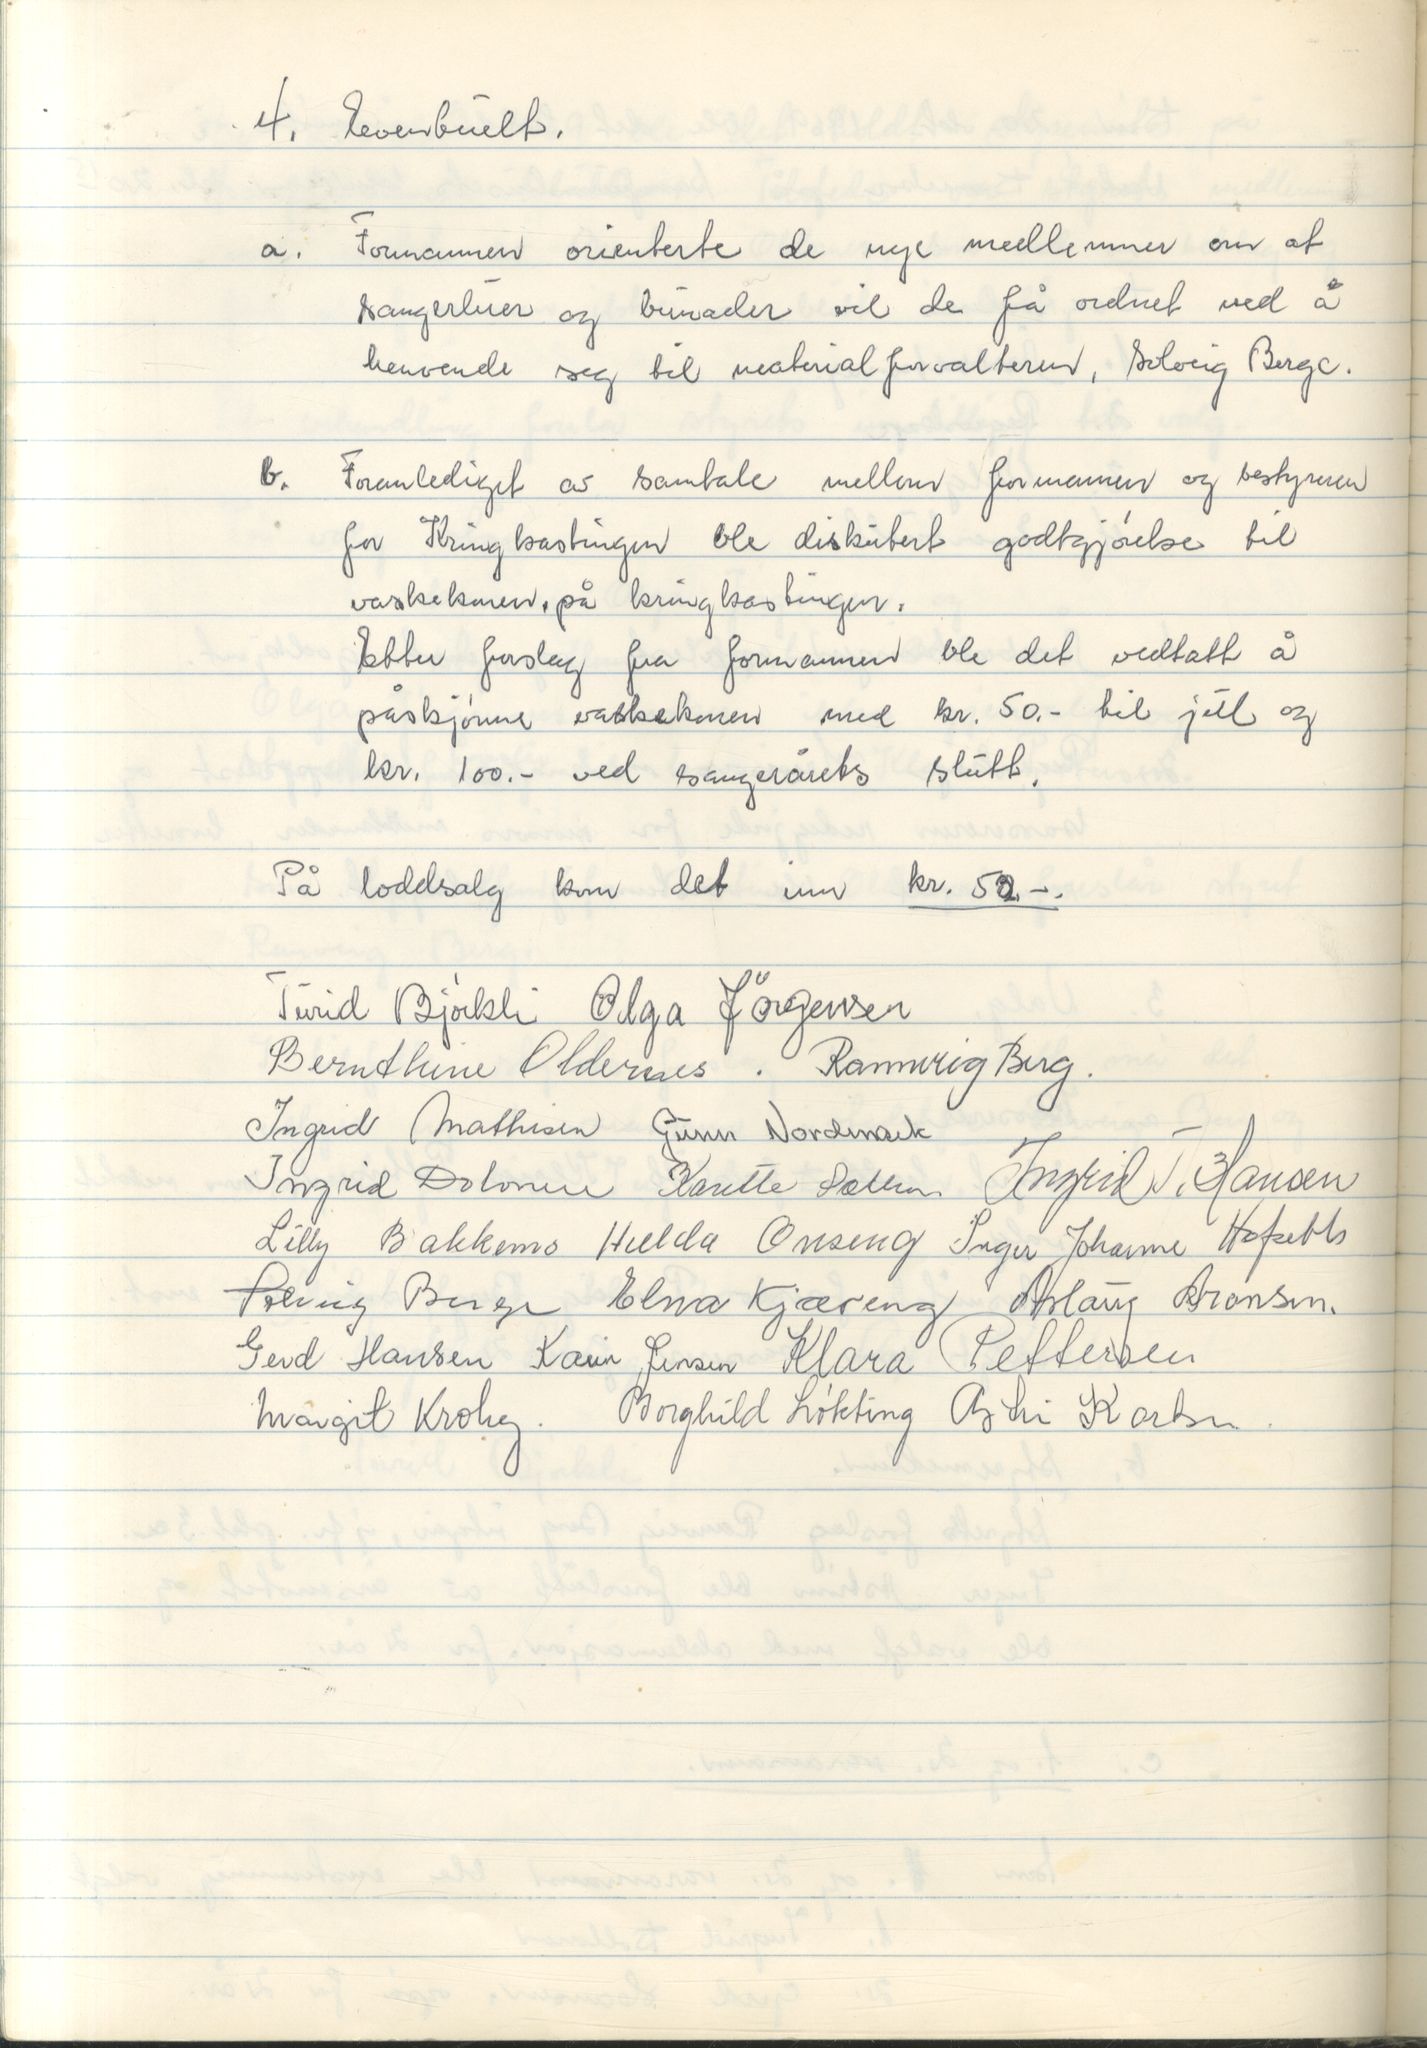 4. Eventuelt.
a. Formannen orienterte de nye medlemmer om at
sangerluer og bunader vil de få ordnet ved å
henvende seg til materialforvalteren, Solveig Berge.
b. Foranlediget av samtale mellom formannen og bestyreren
for Kringkastingen ble diskutert godtgjørelse til
vaskekonen på kringkastingen.
Etter forslag fra formannen ble det vedtatt å
påskjønne vaskekonen med kr. 50.- til jul og
kr. 100.- ved sangerårets slutt.
På loddsalg kom det inn kr. 52.-.
Turid Bjørkli Olga Jörgensen
Bernthine Oldernes . Rannveig Berg.
Ingrid Mathisen Gunn Nordmark
Ingrid Karette Ingrid T. Hansen
Lilly Bakkemo Hulda Onseng Inger Johanne
Solveig Berge Elna Kjæreng Aslaug Aronsen.
Gerd Hansen Karin Jensen Klara Pettersen
Margit Krohg. Borghild Løkting